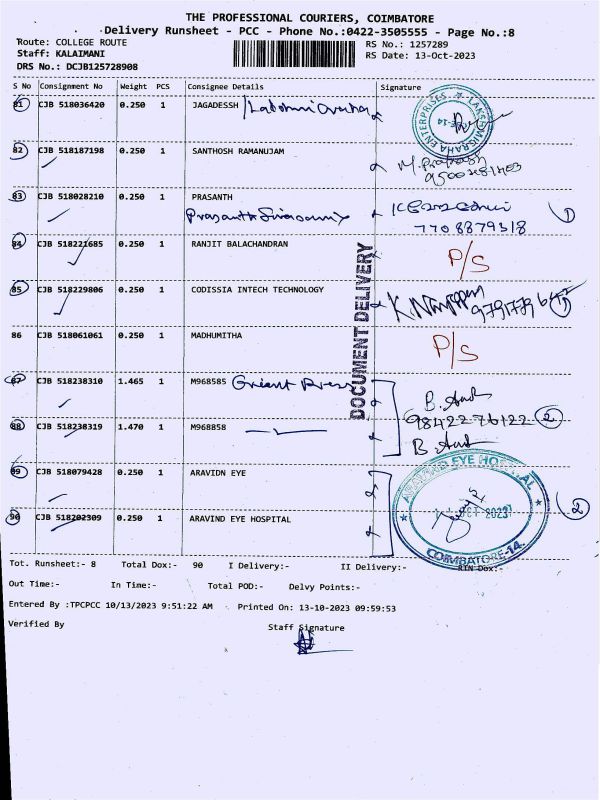 THE PROFESSIONAL COURIERS, COIMBATORE
Delivery Runsheet - PCC - Phone No.:0422-3505555 - Page No.:8
Route: COLLEGE ROUTE RS No.: 1257289
Staff: KALAIMANI RS Date: 13-Oct-2023
DRS No.: DCJB125728908
S No Consignment No Weight PCS Consignee Details Signature
81 CJB 518036420 0.250 1 JAGADESSH
82 CJB 518187198 0.250 1 SANTHOSH RAMANUJAM
83 CJB 518028210 0.250 1 PRASANTH
7708879318 1
84 CJB 518221685 0.250 1 RANJIT BALACHANDRAN P/S
85 CJB 518229806 0.250 1 CODISSIA INTECH TECHNOLOGY
DOCUMENT DELIVERY
86 CJB 518061061 0.250 1 MADHUMITHA P/S
87 CJB 518238310 1.465 1 M968585
9842276122 2
88 CJB 518238319 1.470 1 M968858
89 CJB 518079428 0.250 1 ARAVIDN EYE
90 CJB 518202309 0.250 1 ARAVIND EYE HOSPITAL 2
ARAVIND EYE HOSPITAL
COIMBATORE-14.
Tot. Runsheet:- 8 Total Dox:- 90 I Delivery:- II Delivery:- RTN Dox:-
Out Time:- In Time:- Total POD:- Delvy Points:-
Entered By :TPCPCC 10/13/2023 9:51:22 AM Printed On: 13-10-2023 09:59:53
Verified By Staff Signature